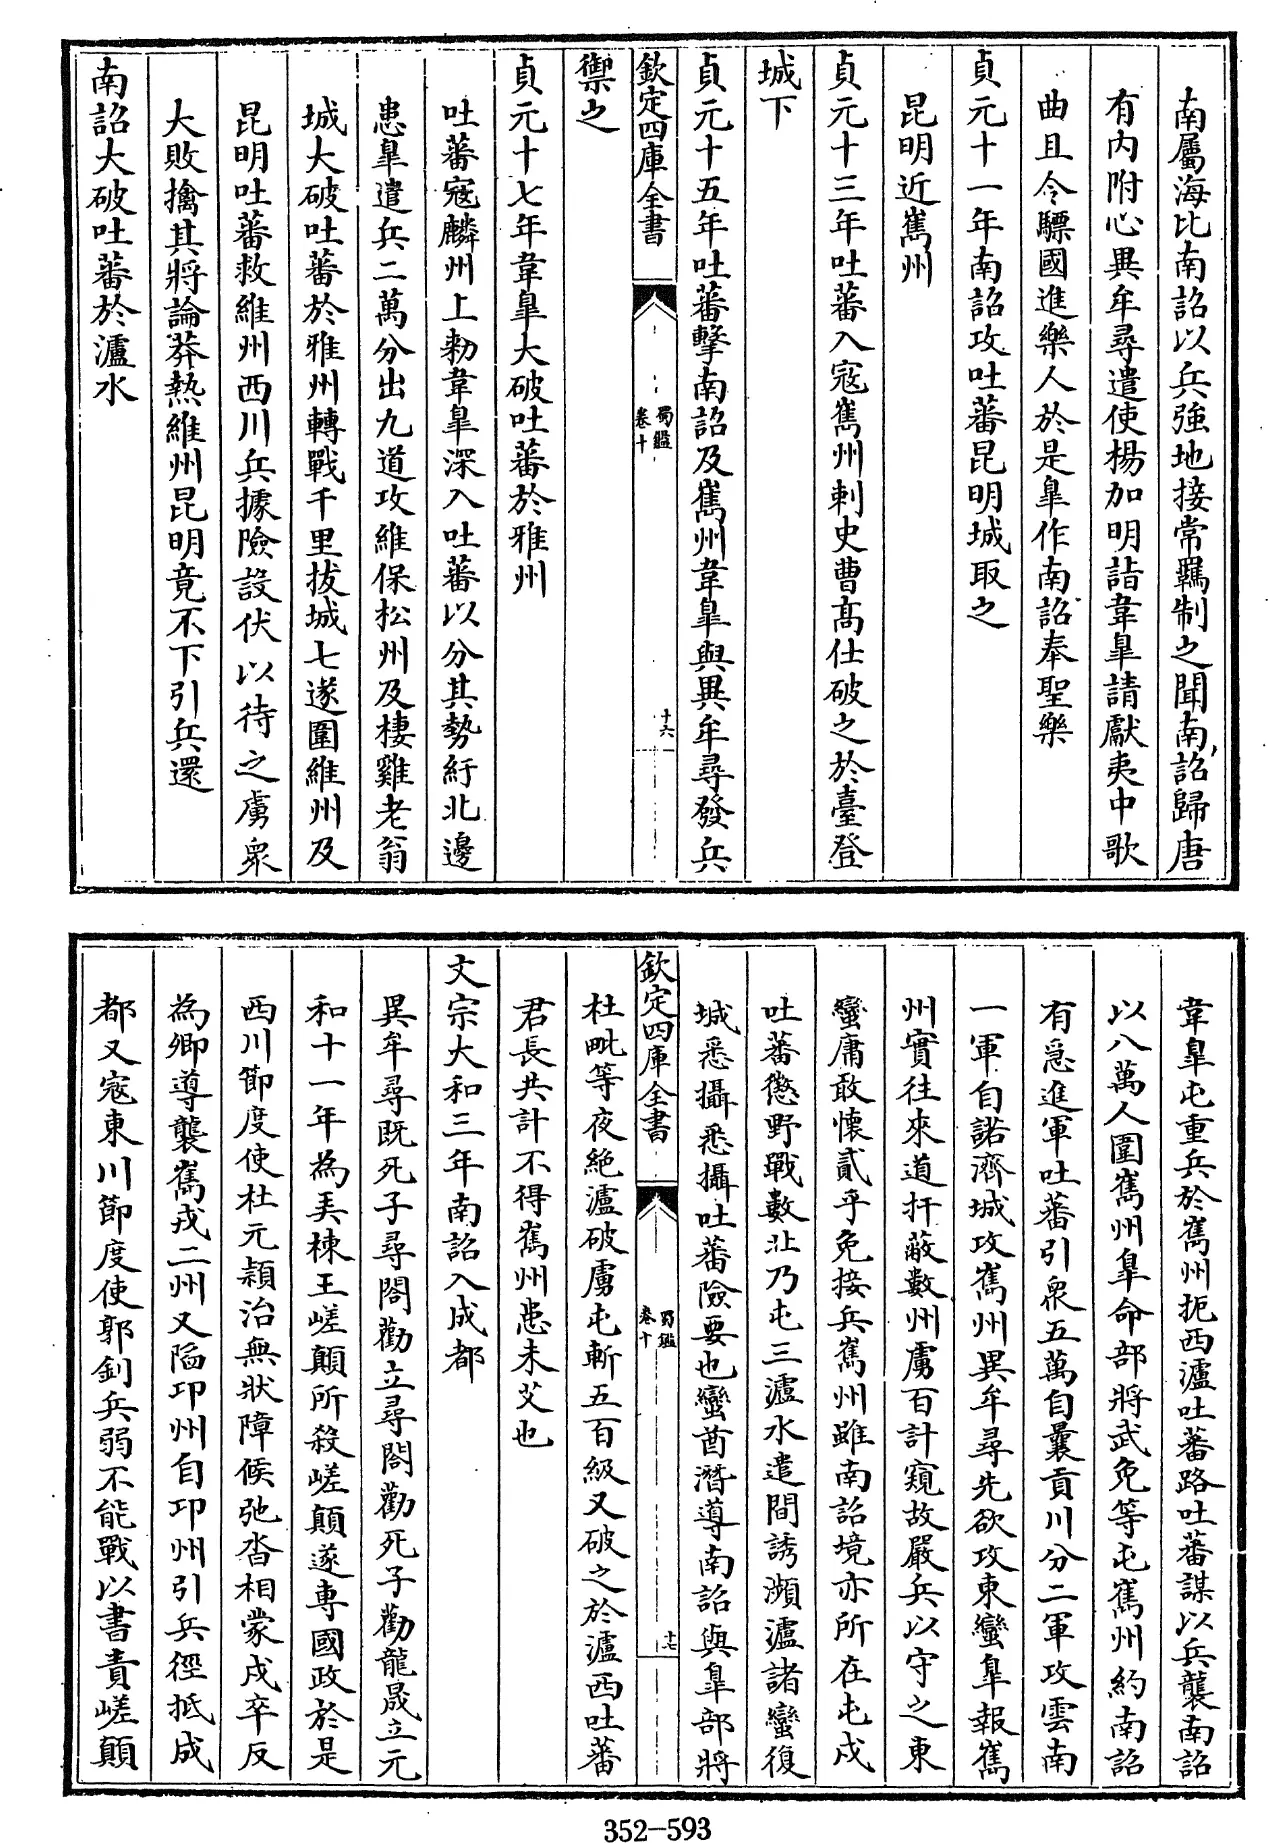 南屬海比南詔以兵強地接常羈制之聞南詔歸唐
有内附心異牟尋遣使楊加明詣韋臯請獻夷中歌
曲且令驃國進樂人於是臯作南詔奉聖樂
貞元十一年南詔攻吐蕃昆明城取之
昆明近嶲州
貞元十三年吐蕃入寇嶲州刺史曹髙仕破之於臺登
城下
貞元十五年吐蕃擊南詔及嶲州韋臯與異牟尋發兵
欽定四庫全書
蜀鑑
卷十
十六
禦之
貞元十七年韋臯大破吐蕃於雅州
吐蕃寇麟州上勅韋臯深入吐蕃以分其勢紓北邊
患臯遣兵二萬分出九道攻維保松州及棲雞老翁
城大破吐蕃於雅州轉戰千里拔城七遂圍維州及
昆明吐蕃救維州西川兵據險設伏以待之虜衆
大敗擒其將論莽熱維州昆明竟不下引兵還
南詔大破吐蕃於瀘水
韋臯屯重兵於嶲州扼西瀘吐蕃路吐蕃謀以兵襲南詔
以八萬人圍嶲州臯命部將武免等屯嶲州約南詔
有急進軍吐蕃引衆五萬自曩貢川分二軍攻雲南
一軍自諾濟城攻嶲州異牟尋先欲攻東蠻臯報嶲
州實往來道扞蔽數州虜百計窺故嚴兵以守之東
蠻庸敢懷貳乎免接兵嶲州雖南詔境亦所在屯戍
吐蕃懲野戰數北乃屯三瀘水遣間誘瀕瀘諸蠻復
城悉攝悉攝吐蕃險要也蠻酋潛導南詔與臯部將
欽定四庫全書
蜀鑑
卷十
十七
杜毗等夜絶瀘破虜屯斬五百級又破之於瀘西吐蕃
君長共計不得嶲州患未艾也
文宗大和三年南詔入成都
異牟尋既死子尋閤勸立尋閤勸死子勸龍晟立元
和十一年為弄棟王嵯顛所殺嵯顛遂專國政於是
西川節度使杜元穎治無狀障候弛沓相蒙戍卒反
為鄉導襲嶲戎二州又陷邛州自邛州引兵徑抵成
都又寇東川節度使郭釗兵弱不能戰以書責嵯顛
352-593